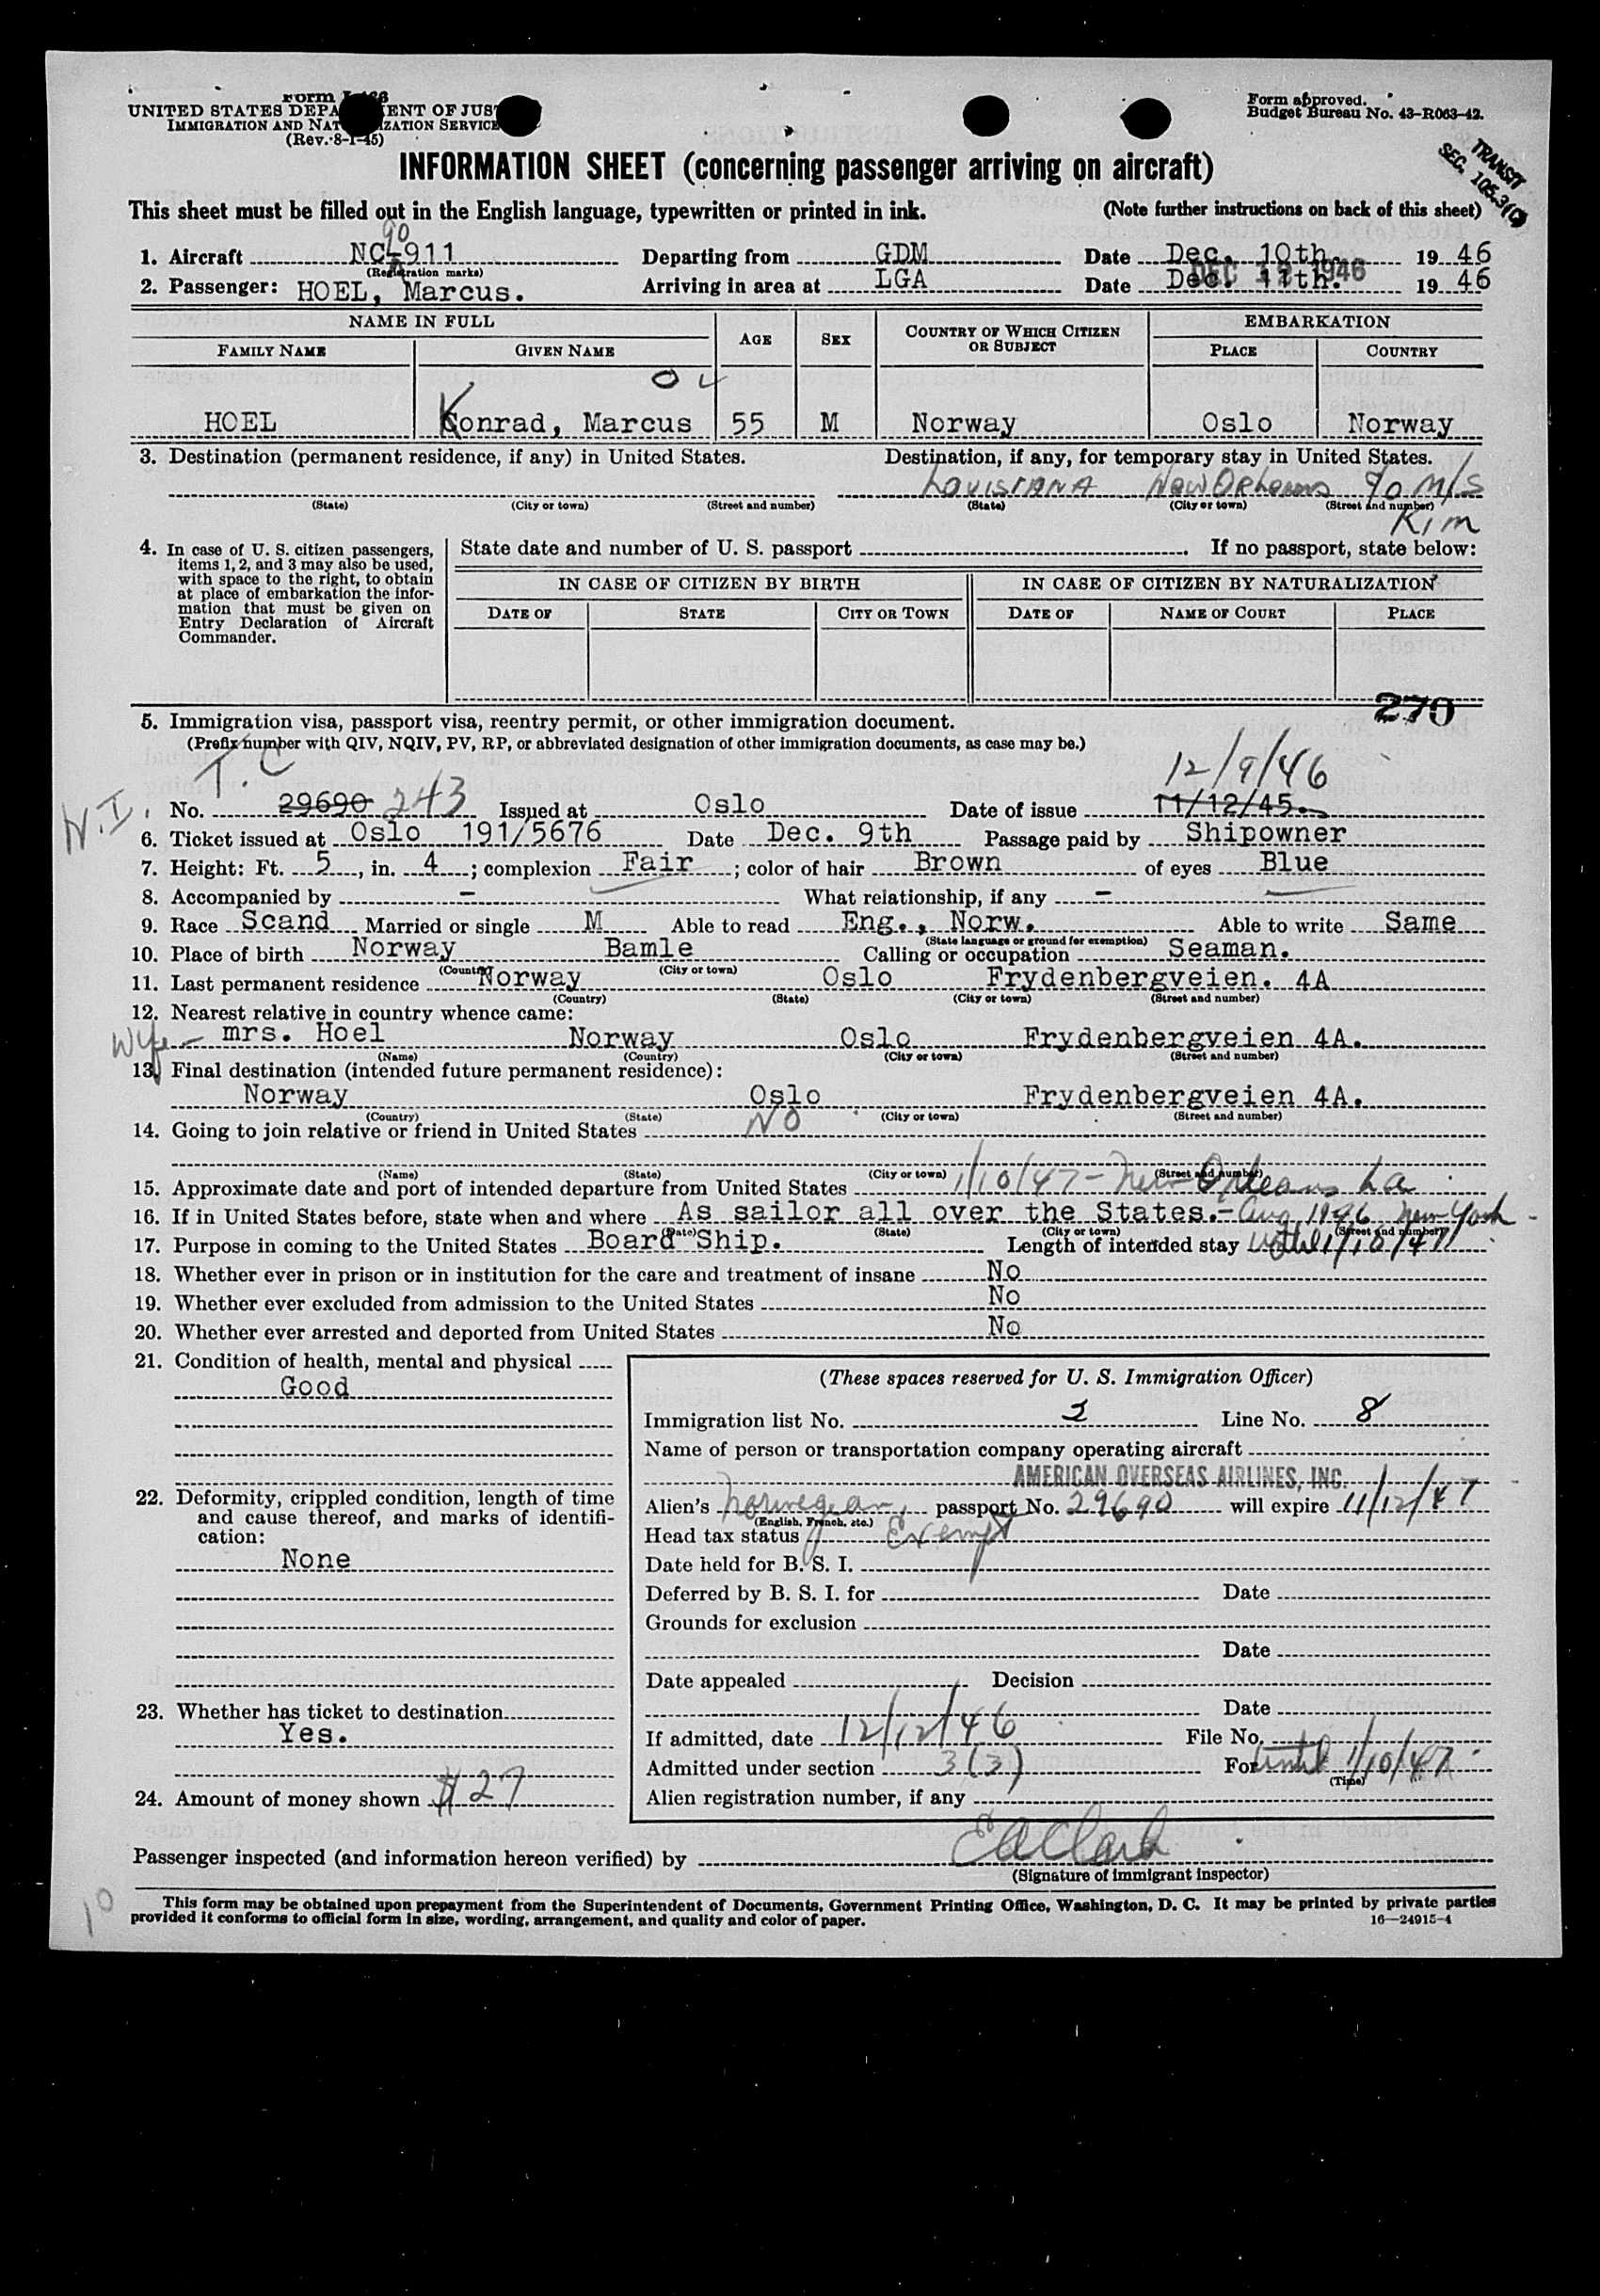 Form I-466
Form approved.
UNITED STATES DEPARTMENT OF JUSTICE
Budget Bureau No. 43-R063-42.
IMMIGRATION AND NATURALIZATION SERVICE
(Rev. 8-1-45)
TRANSIT
SEC. 105.3(C)
INFORMATION SHEET (concerning passenger arriving on aircraft)
This sheet must be filled out in the English language, typewritten or printed in ink. (Note further instructions on back of this sheet)
90
1. Aircraft NC-911 Departing from GDM Date Dec. 10th. 19 46
(Registration marks) DEC 12 1946
2. Passenger: HOEL, Marcus. Arriving in area at LGA Date Dec. 11th. 19 46
NAME IN FULL AGE SEX COUNTRY OF WHICH CITIZEN OR SUBJECT EMBARKATION
FAMILY NAME GIVEN NAME PLACE COUNTRY
HOEL Konrad, Marcus 55 M Norway Oslo Norway
3. Destination (permanent residence, if any) in United States. Destination, if any, for temporary stay in United States.
LOUISIANA NEW ORLEANS % M/S
(State) (City or town) (Street and number) (State) (City or town) (Street and number)
KIM
4. In case of U. S. citizen passengers, items 1, 2, and 3 may also be used, with space to the right, to obtain at place of embarkation the information that must be given on Entry Declaration of Aircraft Commander.
State date and number of U. S. passport . If no passport, state below:
IN CASE OF CITIZEN BY BIRTH IN CASE OF CITIZEN BY NATURALIZATION
DATE OF STATE CITY OR TOWN DATE OF NAME OF COURT PLACE
270
5. Immigration visa, passport visa, reentry permit, or other immigration document.
(Prefix number with QIV, NQIV, PV, RP, or abbreviated designation of other immigration documents, as case may be.)
T.C 12/9/46
N.I. No. 29690 243 Issued at Oslo Date of issue 11/12/45.
6. Ticket issued at Oslo 191/5676 Date Dec. 9th Passage paid by Shipowner
7. Height: Ft. 5, in. 4; complexion Fair; color of hair Brown of eyes Blue
8. Accompanied by - What relationship, if any -
9. Race Scand Married or single M Able to read Eng., Norw. Able to write Same
(State language or ground for exemption)
10. Place of birth Norway Bamle Calling or occupation Seaman.
(Country) (City or town)
11. Last permanent residence Norway Oslo Frydenbergveien. 4A
(Country) (State) (City or town) (Street and number)
12. Nearest relative in country whence came:
Wife - mrs. Hoel Norway Oslo Frydenbergveien 4A.
(Name) (Country) (City or town) (Street and number)
13. Final destination (intended future permanent residence):
Norway Oslo Frydenbergveien 4A.
(Country) (State) (City or town) (Street and number)
14. Going to join relative or friend in United States NO
(Name) (State) (City or town) (Street and number)
15. Approximate date and port of intended departure from United States 1/10/47 - New Orleans La
16. If in United States before, state when and where As sailor all over the States. - Aug 1946 New York
(Date) (State) (City or town) (Street and number)
17. Purpose in coming to the United States Board Ship. Length of intended stay until 1/10/47
18. Whether ever in prison or in institution for the care and treatment of insane No
19. Whether ever excluded from admission to the United States No
20. Whether ever arrested and deported from United States No
21. Condition of health, mental and physical
Good
22. Deformity, crippled condition, length of time and cause thereof, and marks of identification:
None
23. Whether has ticket to destination
Yes.
24. Amount of money shown $27
(These spaces reserved for U. S. Immigration Officer)
Immigration list No. 2 Line No. 8
Name of person or transportation company operating aircraft
AMERICAN OVERSEAS AIRLINES, INC.
Alien's Norwegian passport No. 29690 will expire 11/12/47
(English, French, etc.)
Head tax status Exempt
Date held for B. S. I.
Deferred by B. S. I. for Date
Grounds for exclusion
Date
Date appealed Decision
Date
If admitted, date 12/12/46 File No.
Admitted under section 3(3) For until 1/10/47
(Time)
Alien registration number, if any
Passenger inspected (and information hereon verified) by EA Clark
(Signature of immigrant inspector)
10
This form may be obtained upon prepayment from the Superintendent of Documents, Government Printing Office, Washington, D. C. It may be printed by private parties
provided it conforms to official form in size, wording, arrangement, and quality and color of paper. 16—24915-4